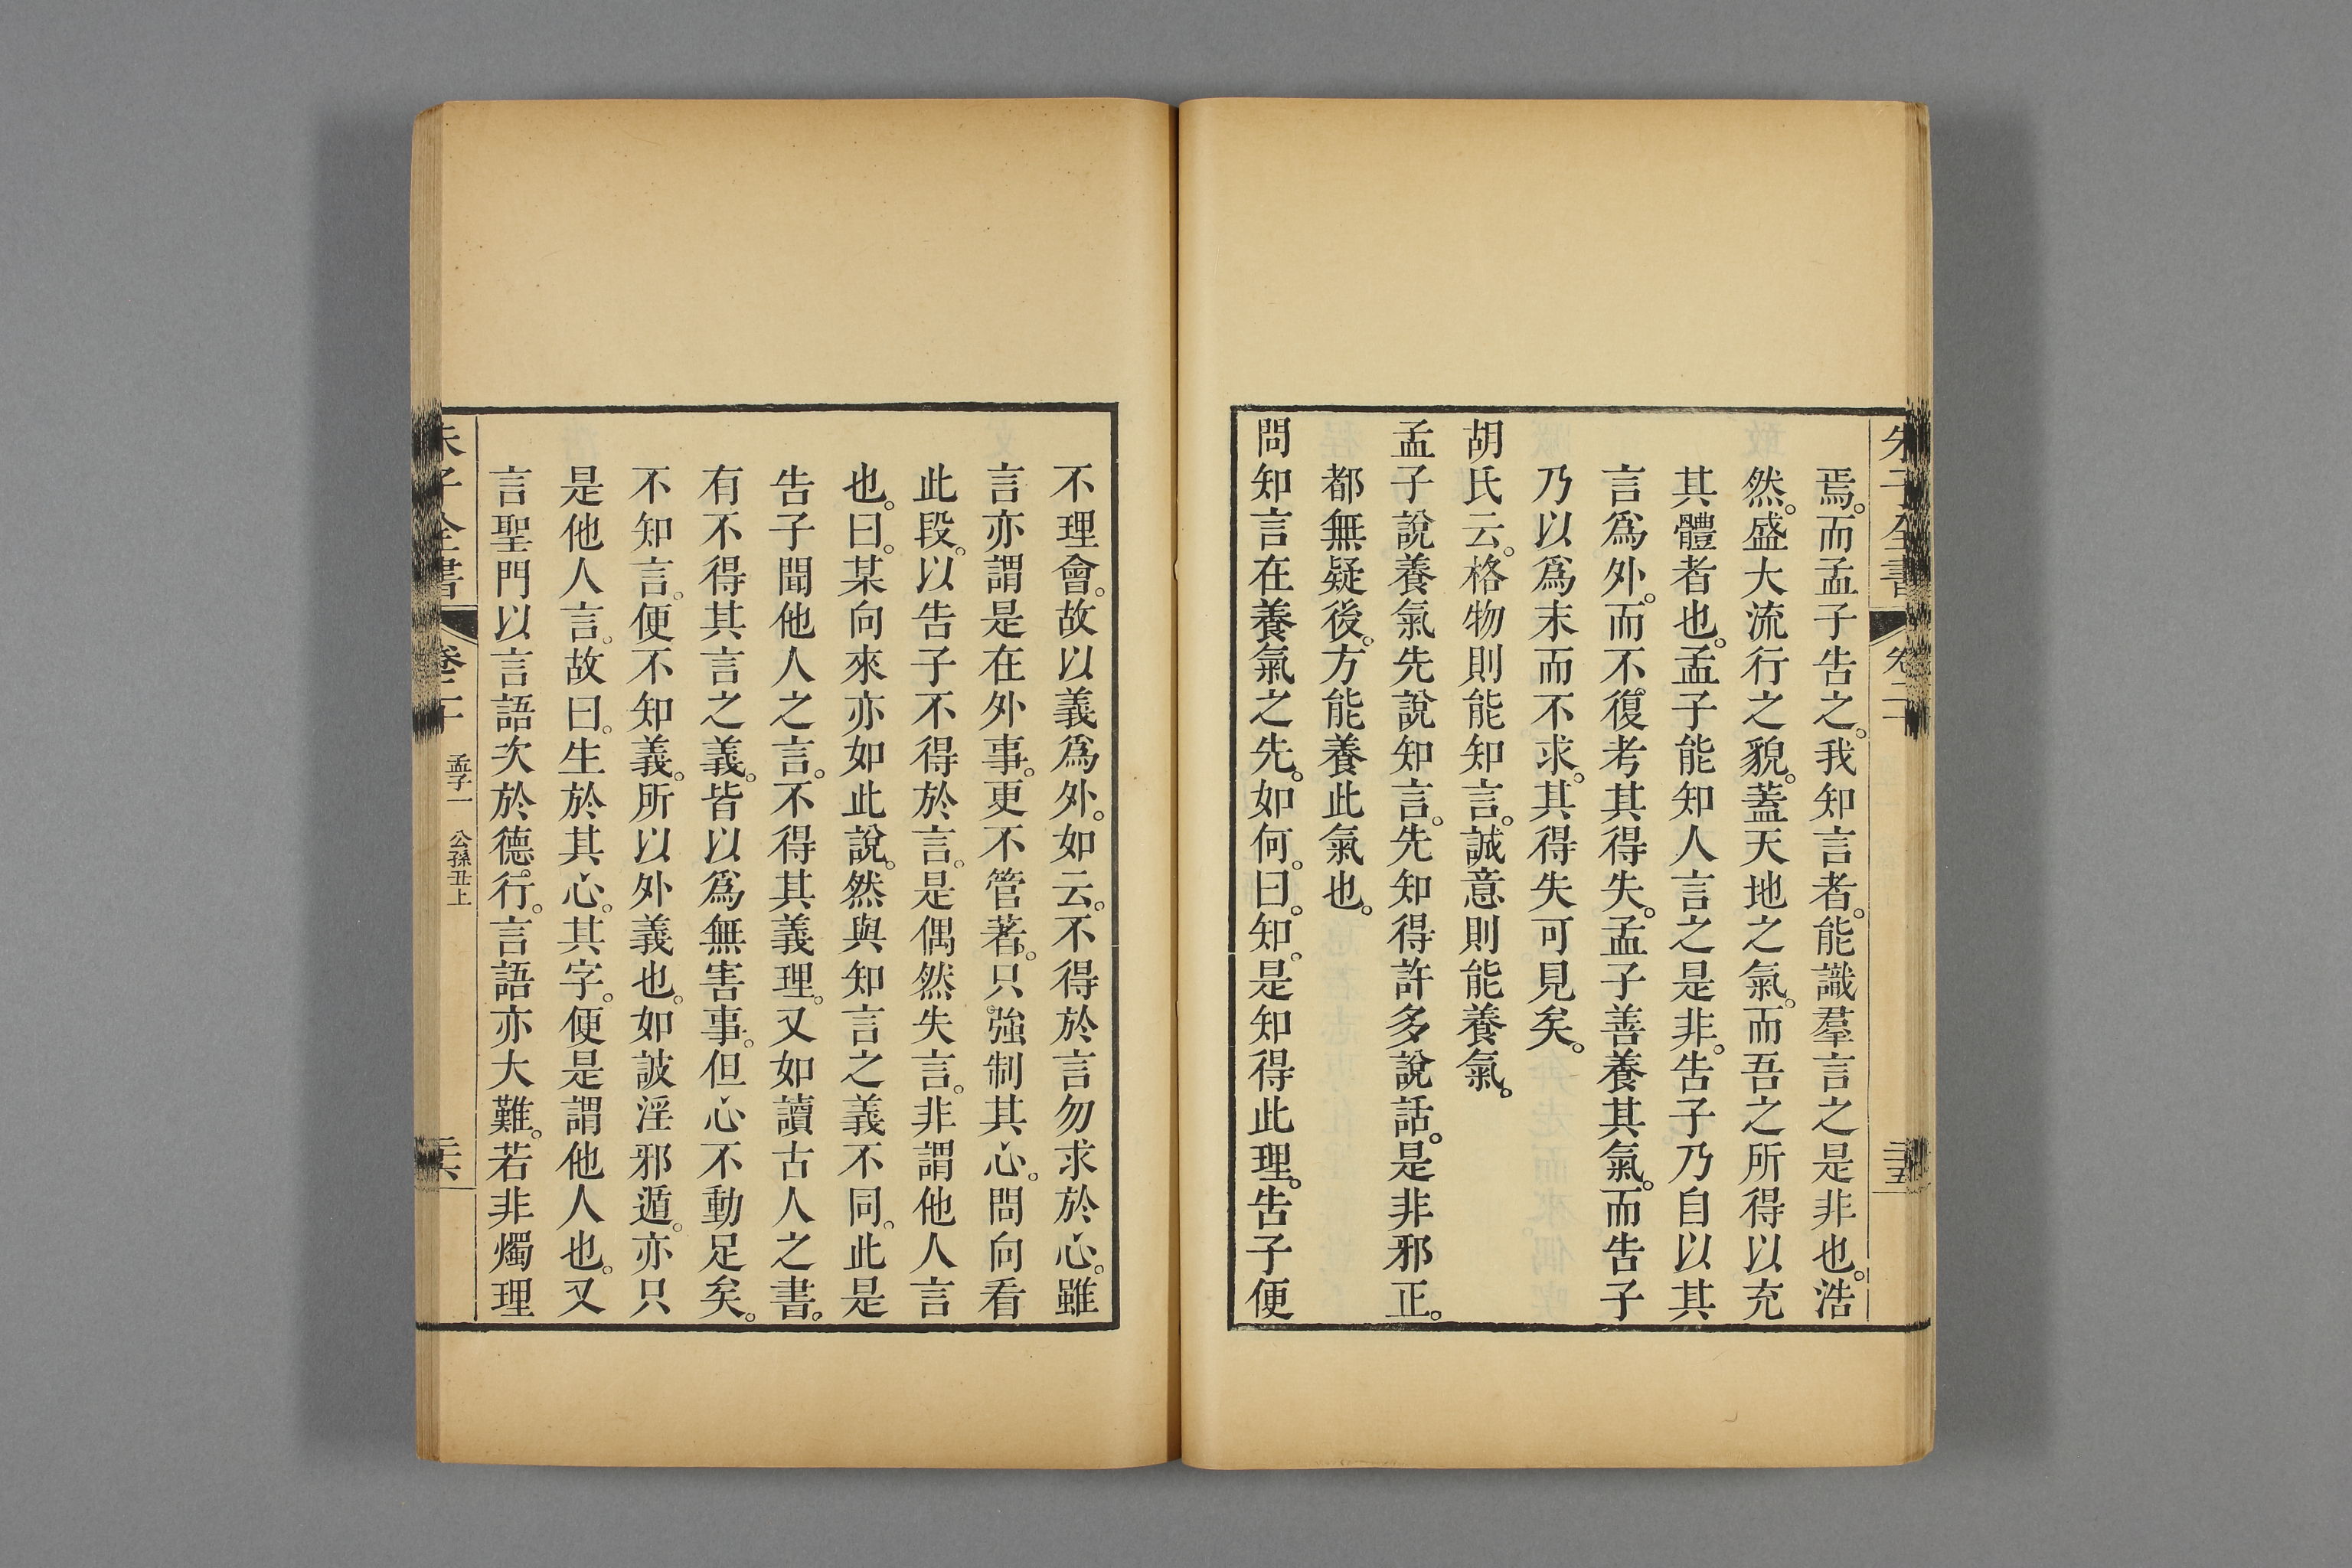 朱子全書 卷二十 二十五
焉。而孟子告之。我知言者。能識羣言之是非也。浩
然。盛大流行之貌。蓋天地之氣。而吾之所得以充
其體者也。孟子能知人言之是非。告子乃自以其
言爲外。而不復考其得失。孟子善養其氣。而告子
乃以爲末而不求。其得失可見矣。
胡氏云。格物則能知言。誠意則能養氣。
孟子說養氣先說知言。先知得許多說話。是非邪正。
都無疑後。方能養此氣也。
問知言在養氣之先。如何。曰。知。是知得此理。告子便
不理會。故以義爲外。如云。不得於言勿求於心。雖
言亦謂是在外事。更不管著。只強制其心。問向看
此段。以告子不得於言。是偶然失言。非謂他人言
也。曰。某向來亦如此說。然與知言之義不同。此是
告子聞他人之言。不得其義理。又如讀古人之書。
有不得其言之義。皆以爲無害事。但心不動足矣。
不知言。便不知義。所以外義也。如詖淫邪遁。亦只
是他人言。故曰。生於其心。其字。便是謂他人也。又
言聖門以言語次於德行。言語亦大難。若非燭理
朱子全書 卷二十 孟子一 公孫丑上 二十六